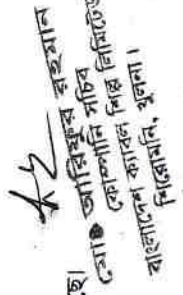 মোঃ রহমান
কোম্পানী সচিব
বাংলাদেশ কেবল শিল্প লিমিটেড
শিরোমণি, খুলনা।